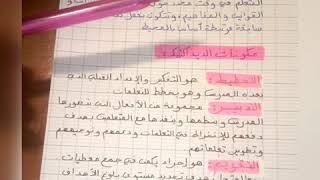 التعلم في وقت محدد
القوانين والمفاهيم، وتتكون بفعل
سابقة مرتبطة أساسا بالمحيط
مكونات الديداكتيك:
التخطيط: هو التفكير والإعداد القبلي الذي
يعده المدرس وهو يخطط للتعلمات
التدبير: مجموعة من الأفعال التي يتصورها
المدرس وينظمها وينفذها مع المتعلمين بهدف
دفعهم للانخراط في التعلمات ودعمهم وتوجيههم
وتطوير تعلماتهم
التقويم: هو إجراء يكمن في جمع معطيات
بهدف تحديد مستوى بلوغ الأهداف